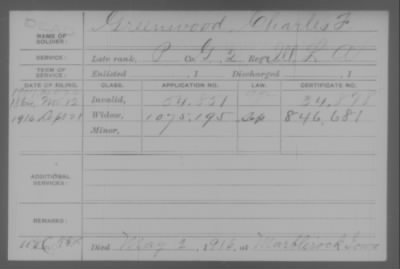 Greenwood, Charles F
NAME OF SOLDIER:
SERVICE: Late rank, P Co. G, 2 Reg't
TERM OF SERVICE: Enlisted , 1 Discharged , 1
DATE OF FILING. CLASS. APPLICATION NO. LAW. CERTIFICATE NO.
Nov 12 Invalid, 54,551
1916 Sept 21 Widow, 1075,195 846,681
Minor,
ADDITIONAL SERVICES:
REMARKS:
Died May 2, 1916, at Marblerock Iowa